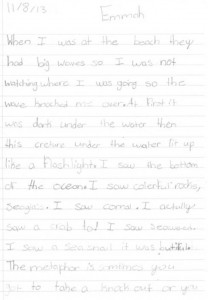 11/8/13
Emmah
When I was at the beach they
had big waves so I was not
watching where I was going so the
wave knocked me over. At first it
was dark under the water then
this creture under the water lit up
like a flachlight. I saw the bottom
of the ocean. I saw colerful rocks,
I saw coral. I actully
saw a crab too! I saw seaweed.
I saw a sea snail it was
The metaphor is you
to take a knock out or you